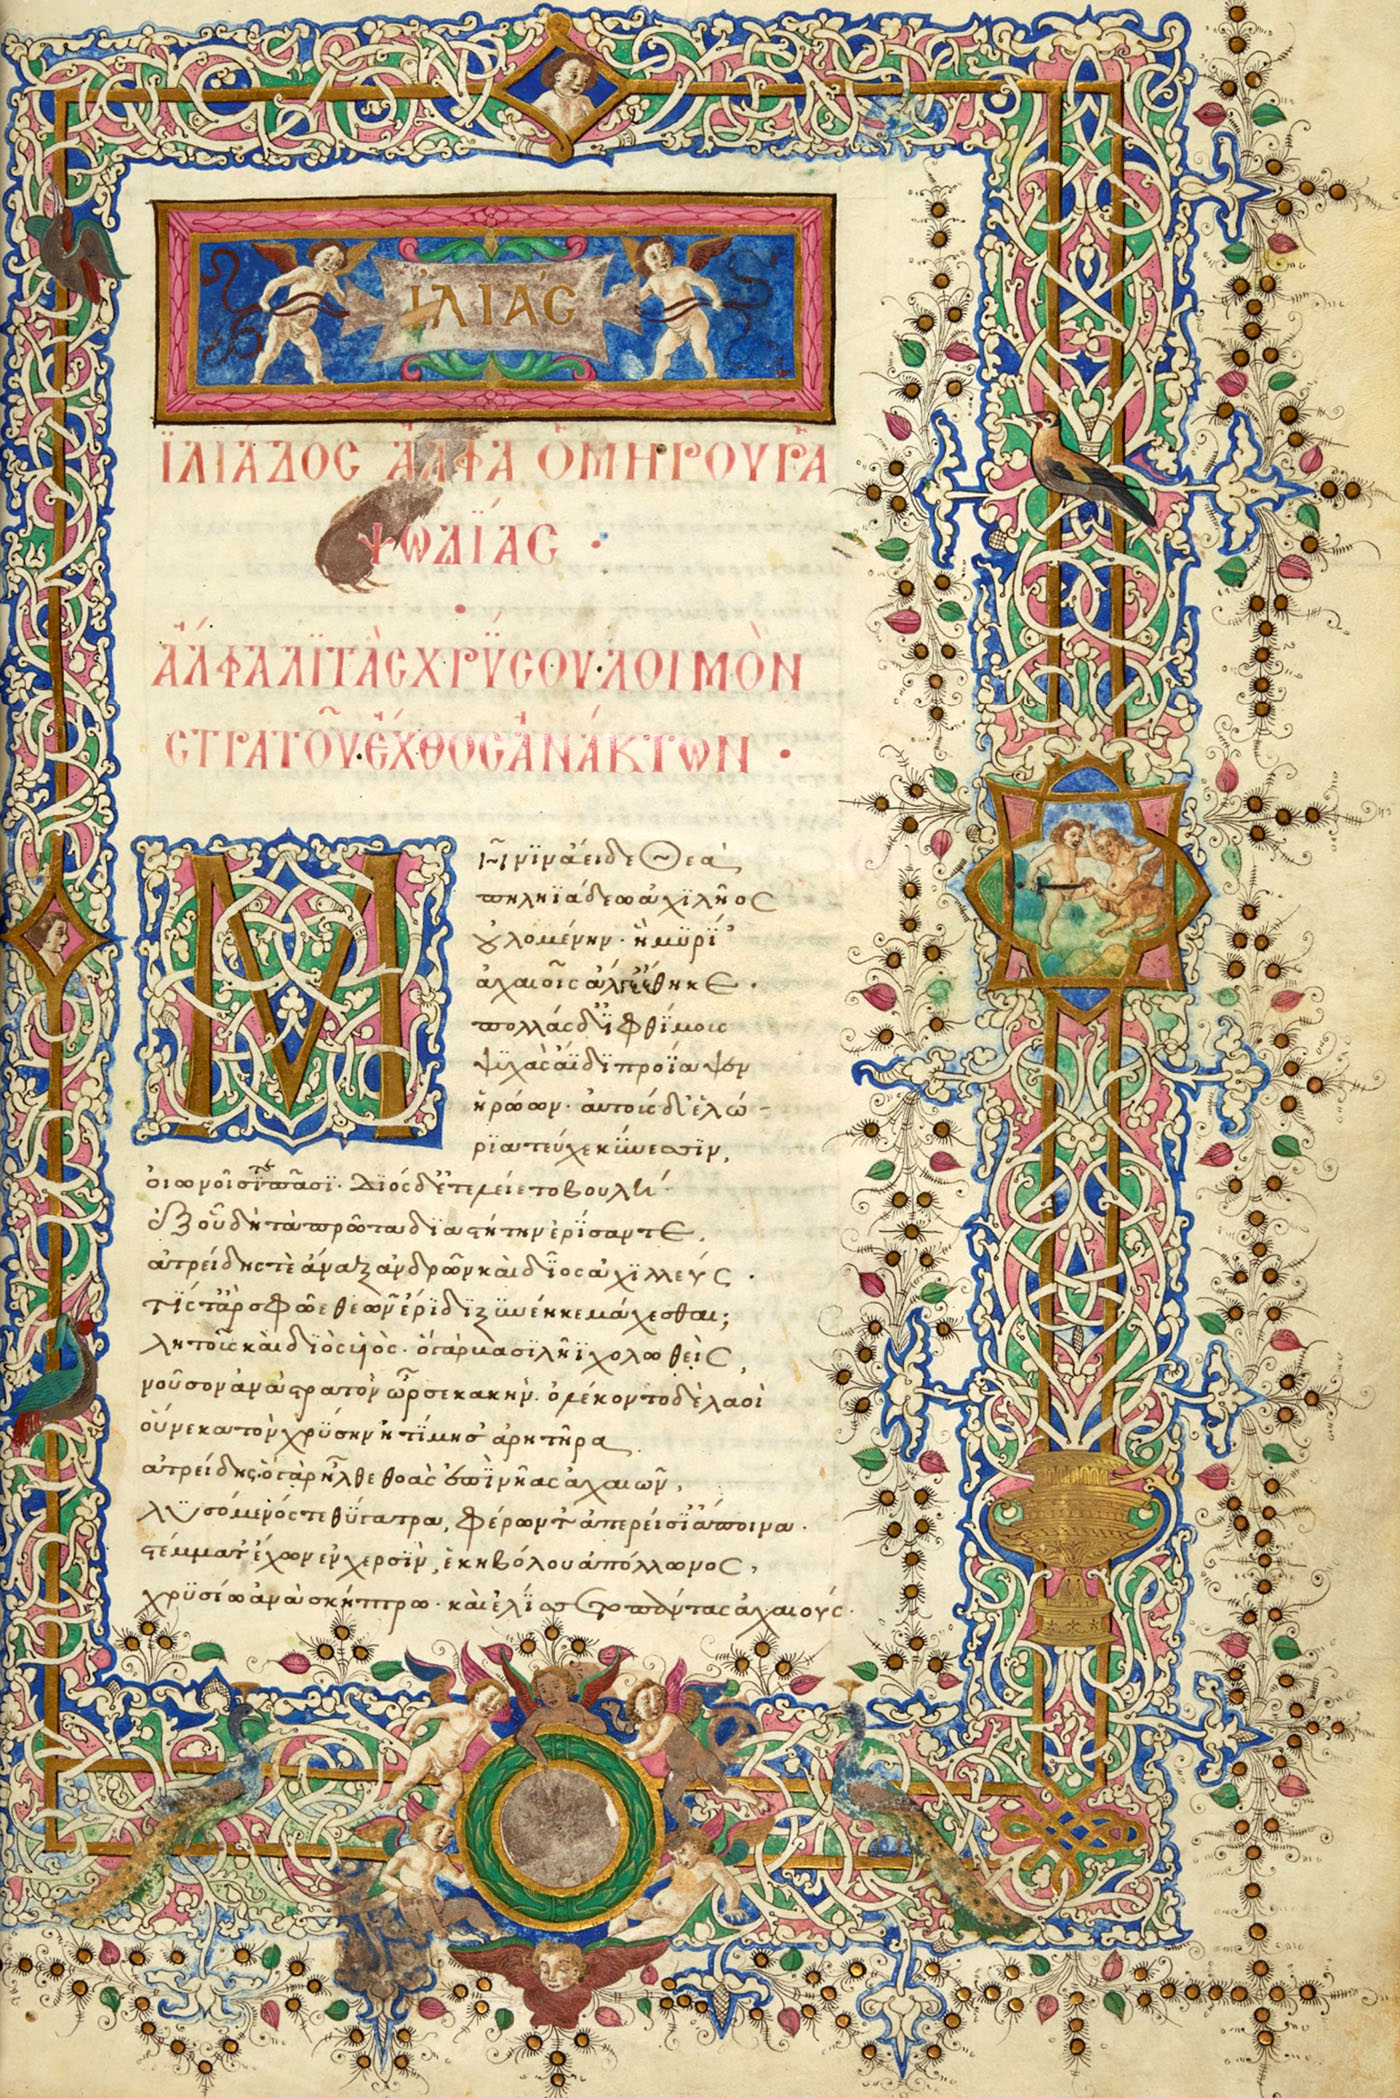 ἸΛΙΆС
ΪΛΙΆΔΟС ἌΛΦΑ ὉΜΗΡΟΥ ΡΑ
ΨΩΔΪΑС ·
ἌΛΦΑ ΛΪΤᾺС ΧΡΎСΟΥ · ΛΟΙΜῸΝ
СΤΡΑΤΟΥ͂ · ἜΧΘΟС ἈΝΆΚΤΩΝ ·
Μῆνιν ἄειδε Θεὰ
πηληϊάδεω ἀχιλῆος
οὐλομένην · ἣ μϋρΐ'
ἀχαιοῖς ἄλγε' ἔθηκε ·
πολλὰς δ' ἰφθίμοις
ψϋχὰς ἄϊδι προΐαψεν
ἡρώων · αὐτοὺς δ' ἑλώ-
ρϊα τεῦχε κΰνεσσϊν,
οἰωνοῖσί τε πᾶσϊ · Διὸς δ' ἐτελείετο βουλή ·
ἐξ οὗ δὴ τὰ πρῶτα δϊαστήτην ἐρίσαντε,
ἀτρείδης τὲ ἄναξ ἀνδρῶν καὶ δῖος ἀχιλλεύς ·
τΐς τ' ἄρ σφῶε θεῶν ἔρϊδϊ ξϋνέηκε μάχεσθαι;
λητοῦς καὶ διὸς υἱός · ὁ γὰρ βασιλῆϊ χολωθεὶς,
νοῦσον ἀνὰ στρατὸν ὦρσε κακήν · ὀλέκοντο δὲ λαοὶ
οὕνεκα τὸν χρύσην ἠτίμησ' ἀρητῆρα
ἀτρείδης · ὁ γὰρ ἦλθε θοὰς ἐπὶ νῆας ἀχαιῶν,
λϋσόμενός τε θύγατρα, φέρων τ' ἀπερείσϊ' ἄποινα ·
στέμματ' ἔχων ἐν χερσὶν, ἑκηβόλου ἀπόλλωνος,
χρϋσέω ἀνὰ σκήπτρω · καὶ ἐλίσσετο πάντας ἀχαιούς ·